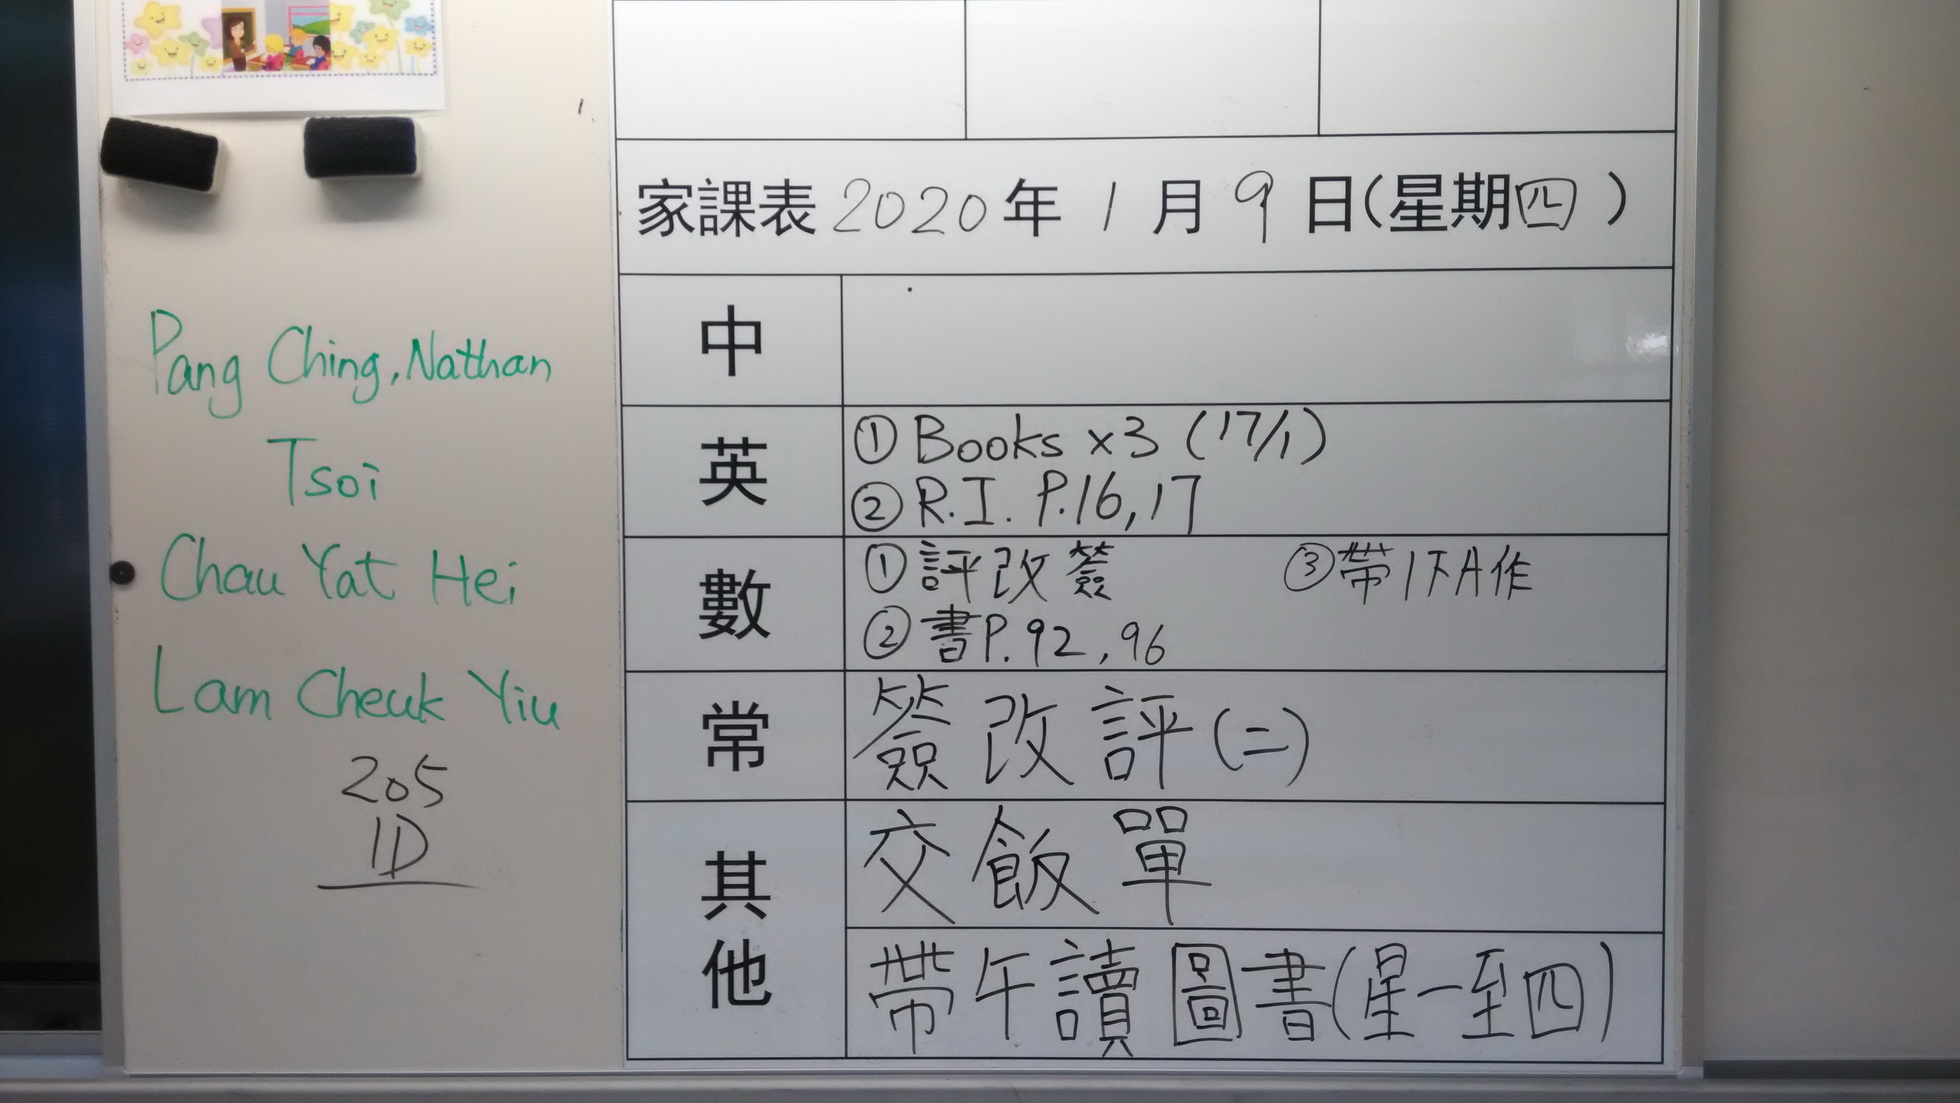 家課表 2020年 1月 9日(星期四)
中
英
① Books ×3 (17/1)
② R.I. P.16,17
數
① 評改簽
③ 帶1下A作
② 書P.92,96
常
簽改評(二)
其他
交飯單
帶午讀圖書(星一至四)
Pang Ching, Nathan
Tsoi
Chau Yat Hei
Lam Cheuk Yiu
205
1D